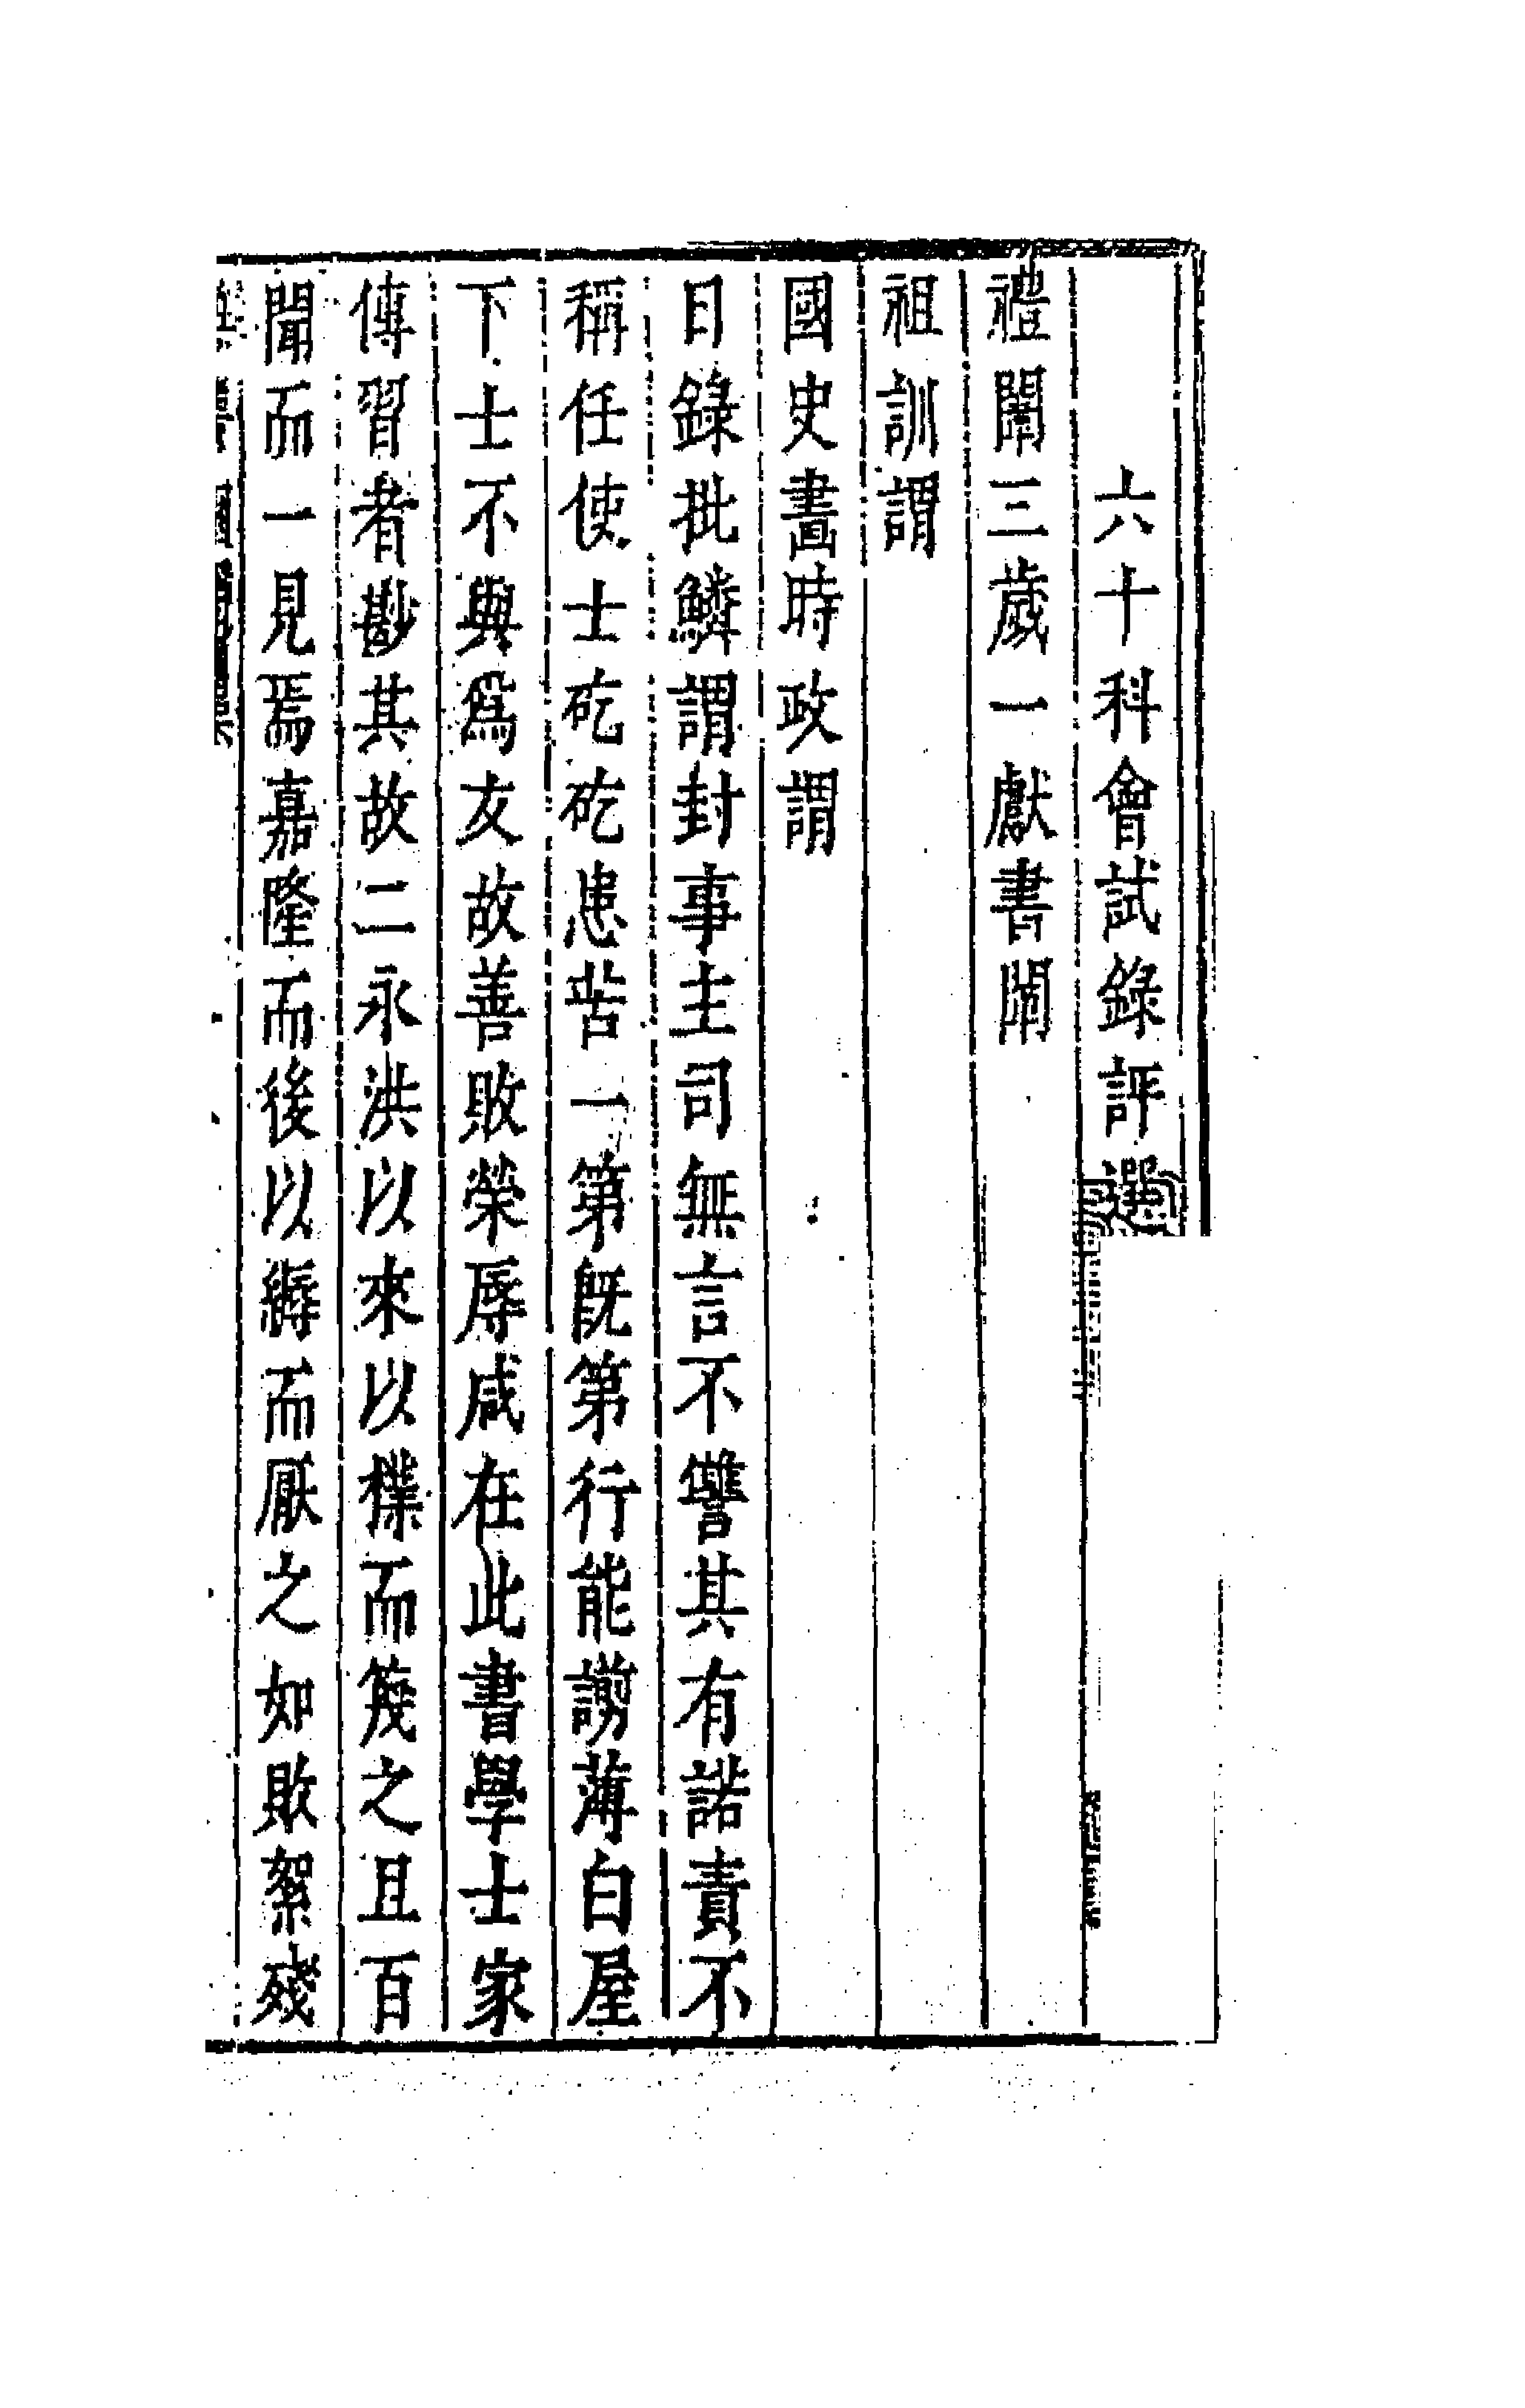 六十科會試錄評選
禮闈三歲一獻書闈
祖訓謂
國史畫時政謂
目錄批鱗謂封事主司無言不讐其有諾責不
稱任使士矻矻患苦一第旣第行能謭薄白屋
下士不與爲友故善敗榮辱咸在此書學士家
傳習者尠其故二永洪以來以檏而篾之且百
聞而一見焉嘉隆而後以縟而厭之如敗絮殘